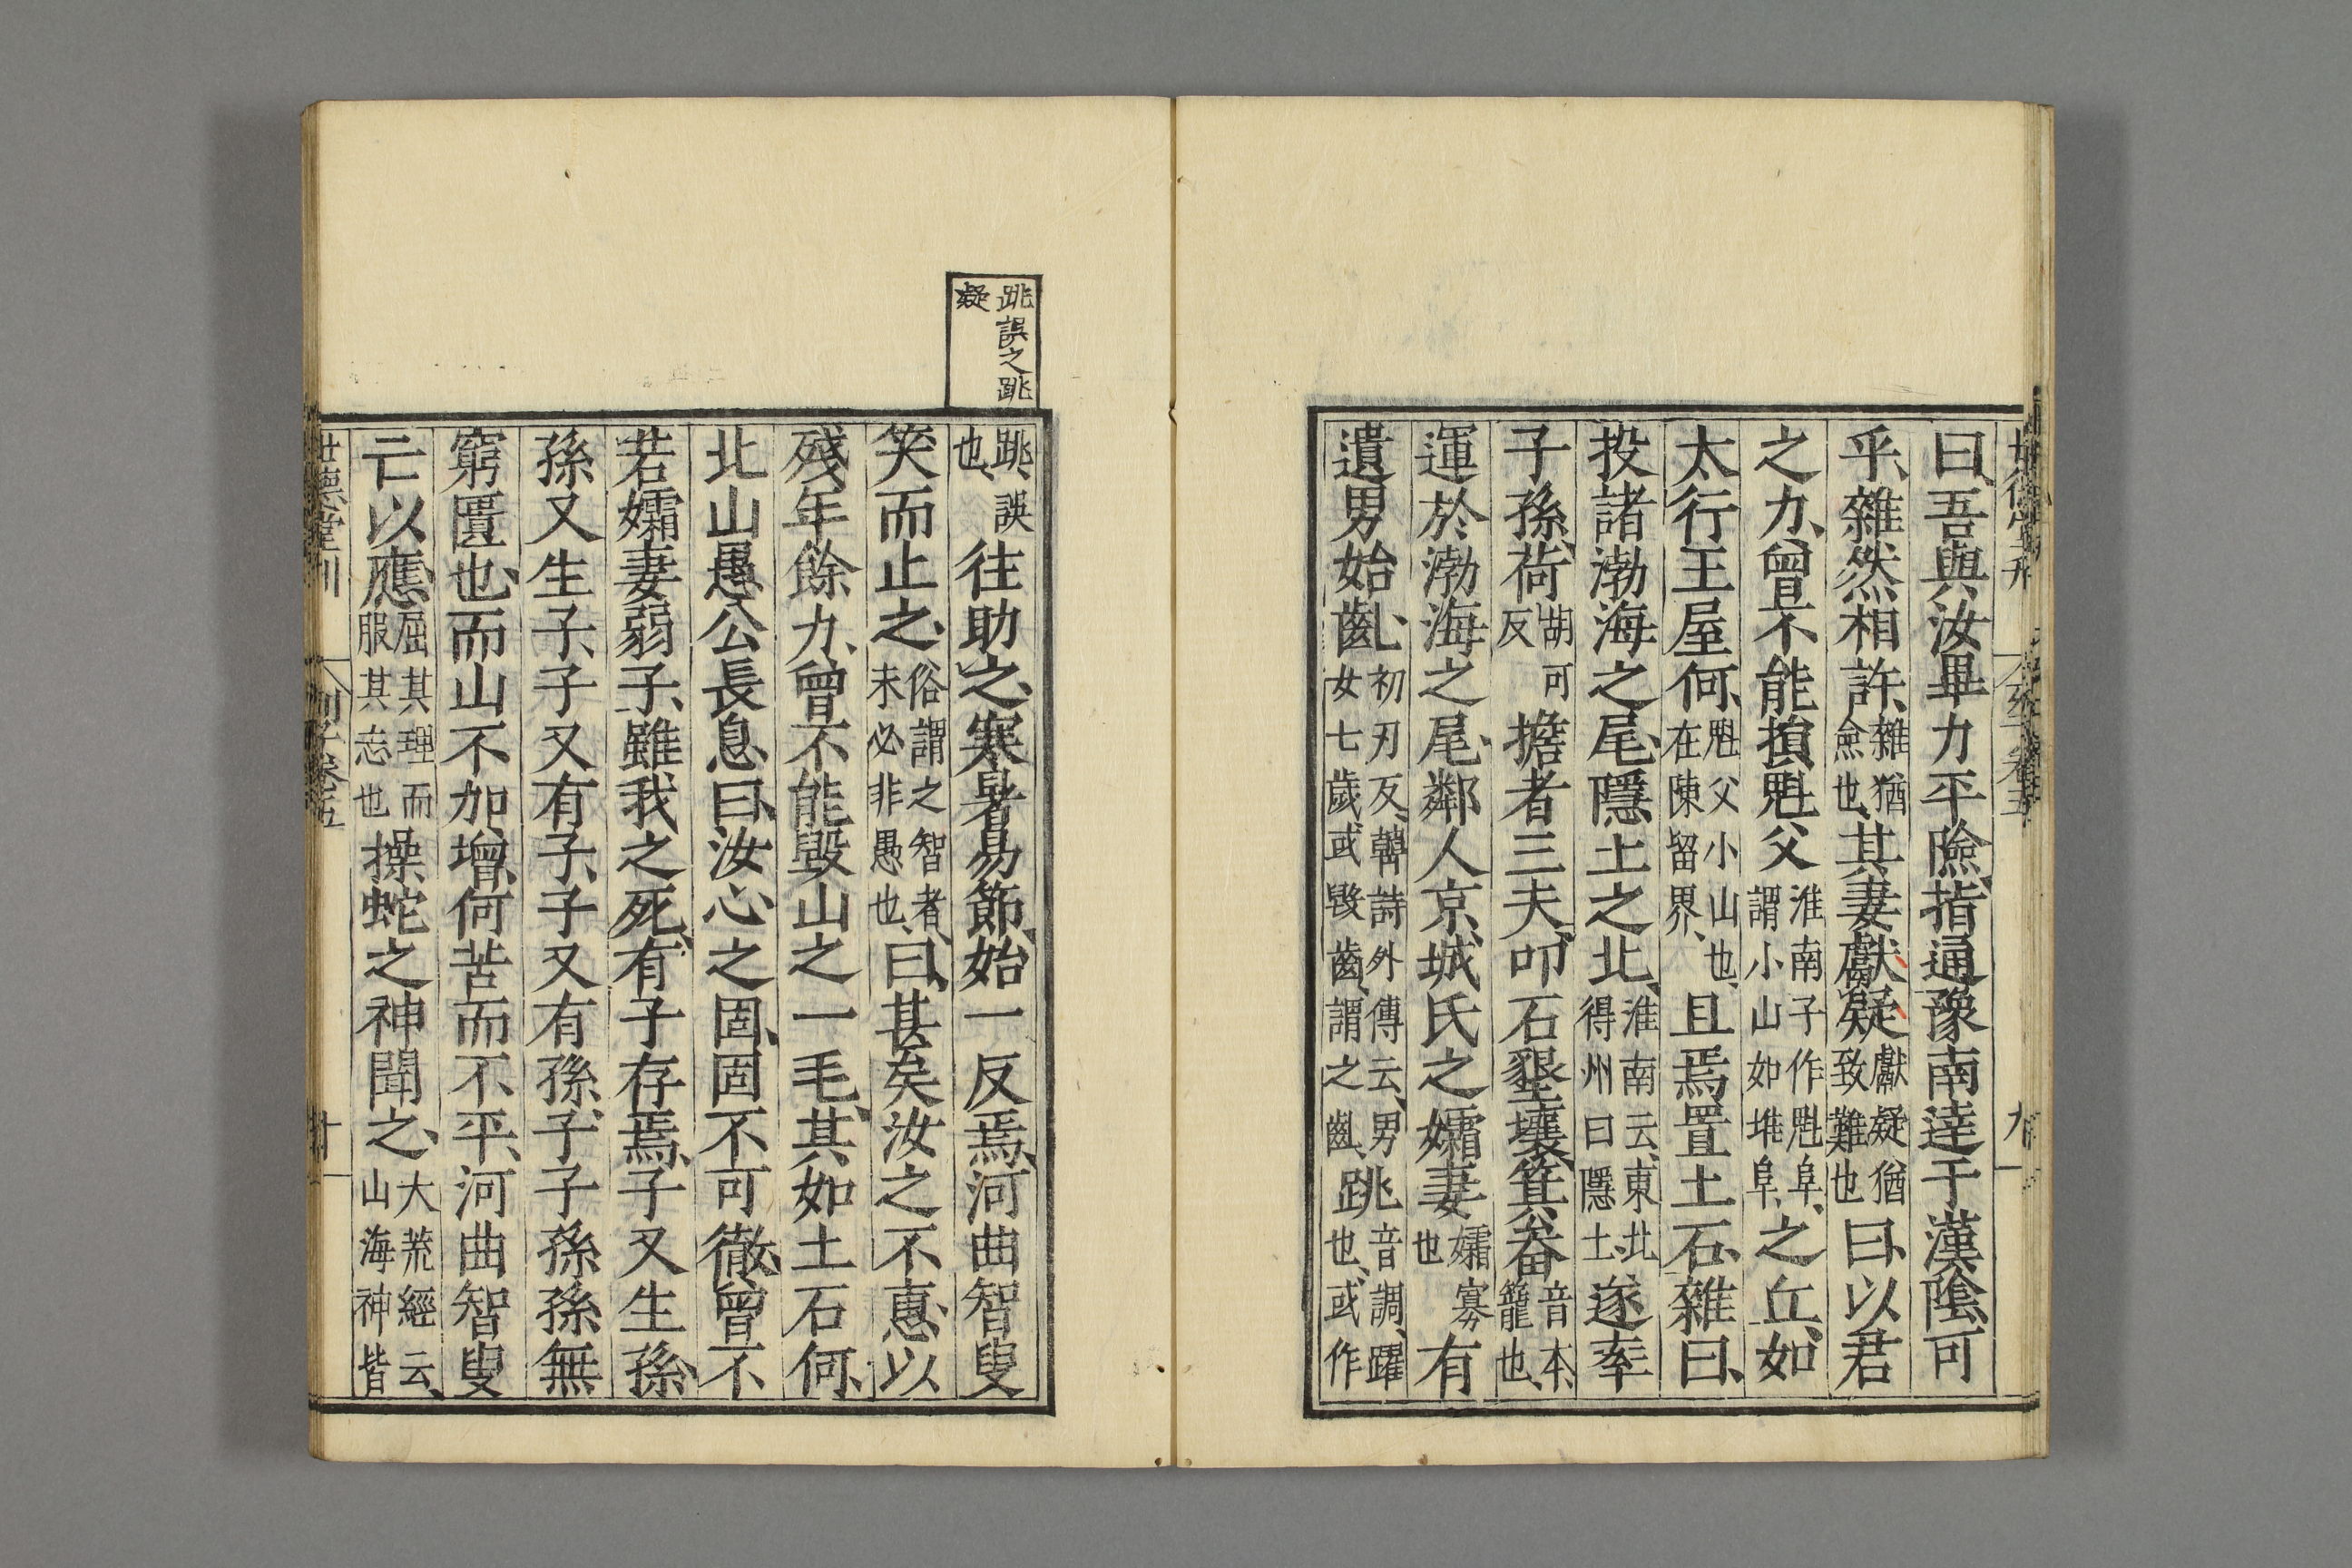 曰、吾與汝畢力平險、指通豫南達于漢陰、可
乎、雜然相許、雜猶僉也、其妻獻疑獻疑猶致難也曰、以君
之力、曾不能損魁父淮南子作魁阜、謂小山如堆阜、之丘、如
太行王屋何、魁父小山也、在陳留界、且焉置土石、雜曰、
投諸渤海之尾、隱土之北、淮南云、東北得州曰隱土、遂率
子孫、荷胡可反擔者三夫、叩石墾壤、箕畚音本、籠也、
運於渤海之尾、鄰人京城氏之孀妻孀寡也有
遺男始齔、初刃反、韓詩外傳云、男女七歲或毀齒、謂之齔、跳音調、躍也、或作
跳誤之跳
疑
跳、誤也、往助之、寒暑易節、始一反焉、河曲智叟
笑而止之、俗謂之智者、未必非愚也、曰、甚矣汝之不惠、以
殘年餘力、曾不能毀山之一毛、其如土石何、
北山愚公長息曰、汝心之固、固不可徹、曾不
若孀妻弱子、雖我之死、有子存焉、子又生孫、
孫又生子、子又有子、子又有孫、子子孫孫無
窮匱也、而山不加增、何苦而不平、河曲智叟
亡以應、屈其理而服其志也操蛇之神聞之、大荒經云、山海神皆
世德堂刊 列子卷五 十